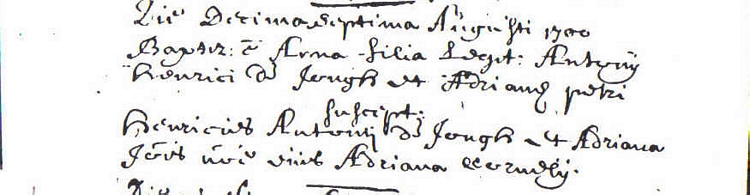 Die Decima Septima Augusti 1700
Baptz: ē Anna filia Legit: Antonij
Henrici de Jongh et Adrianæ petri
suscept:
Henricus Antonij de Jongh et Adriana
Joīs Adriana Cornelij.